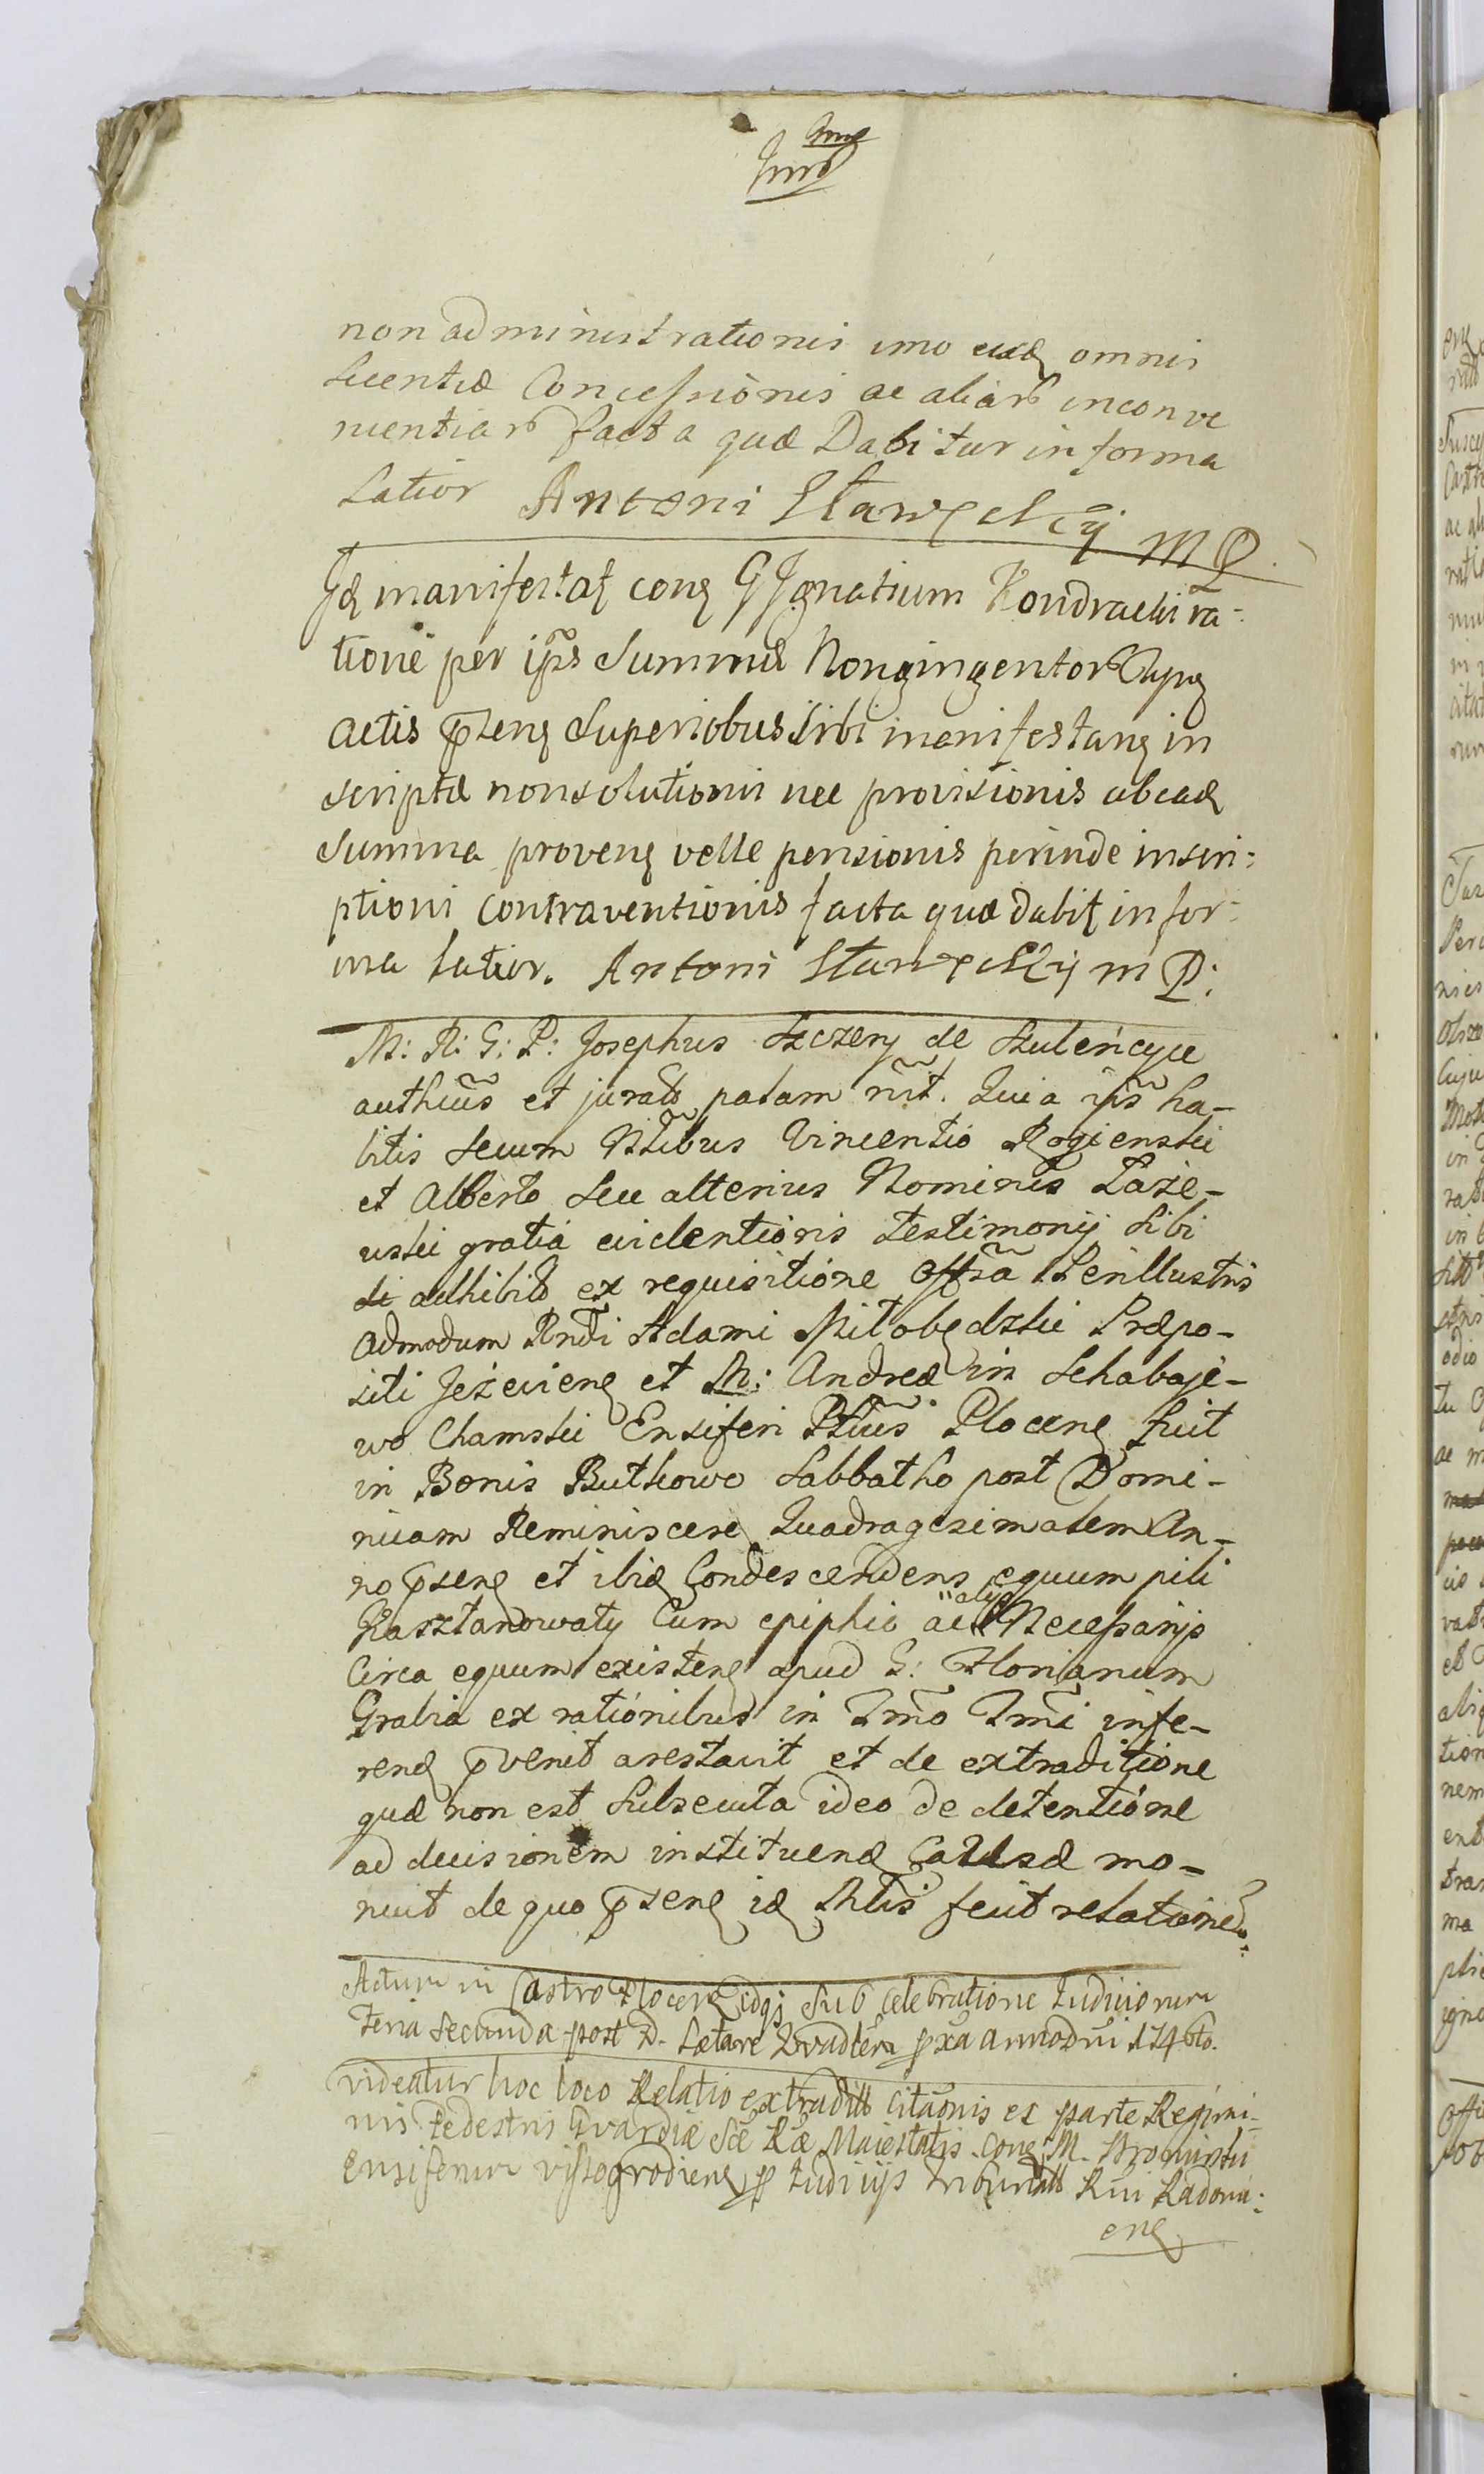 non administrationis imo eiusd omnis
licentiæ Concessionis ac aliarb inconve
nientiarb facta quæ Dabitur in forma
Latior Antoni MP
Id manifestat cong G Ignatium Kondracki ra-
tione per ips Summæ Nongingentor
actis pseng superiobus sibi manifestang in
scriptæ nonsolutionis nec provisionis ab ead
Summa proveng velle pensionis perinde inscri:
ptioni Contraventionis facta quæ dabit in for:
ma latior. Antoni mP:
M: R: G: P: Josephus Szczery de Szulencyce
authcus et jurats palam rnit. Quia ips ha-
bitis secum Nblibus Vincentio Rogienski
et Alberto seu alterius Nominis Łaze-
wski gratia evidentioris testimonij sibi
di adhibits ex requisitione offsa Perillustris
admodum Rndi Adami Miłobędzki Præpo-
siti Jeżevieng et M: Andreæ in Schabaje-
wo Chamski Ensiferi Pttus Ploceng fuit
in Bonis Butkowo Sabbatho post Domi-
nicam Reminiscere Quadragesimalem An-
no pseng et ibid Condescendens equum pili
Kasztanowaty Cum epiphio ac alijs Necessarijs
Circa equum existeng apud G: Florianum
Grabia ex rationibus in Tmo Tmi infe-
reng pvenit arestavit et de extraditione
quæ non est subsecuta ideo de detentione
ad decisionem instituend Causæ mo-
nuit de quo pseng id Mtlis fecit relatione
Actum in Castro Ploceng idqz sub celebratione Judiciorum
Feria secunda post D. Lætare Qvadlem pxa anno dni 1746to.
videatur hoc loco Relatio extradits citaonis ex parte Regimi-
nis Pedestris Gvardiæ Sæ Ræ Maiestatis cong M.
Ensiferum vissogrodieng p Judicijs Tribunals Rni Radomi:
eng